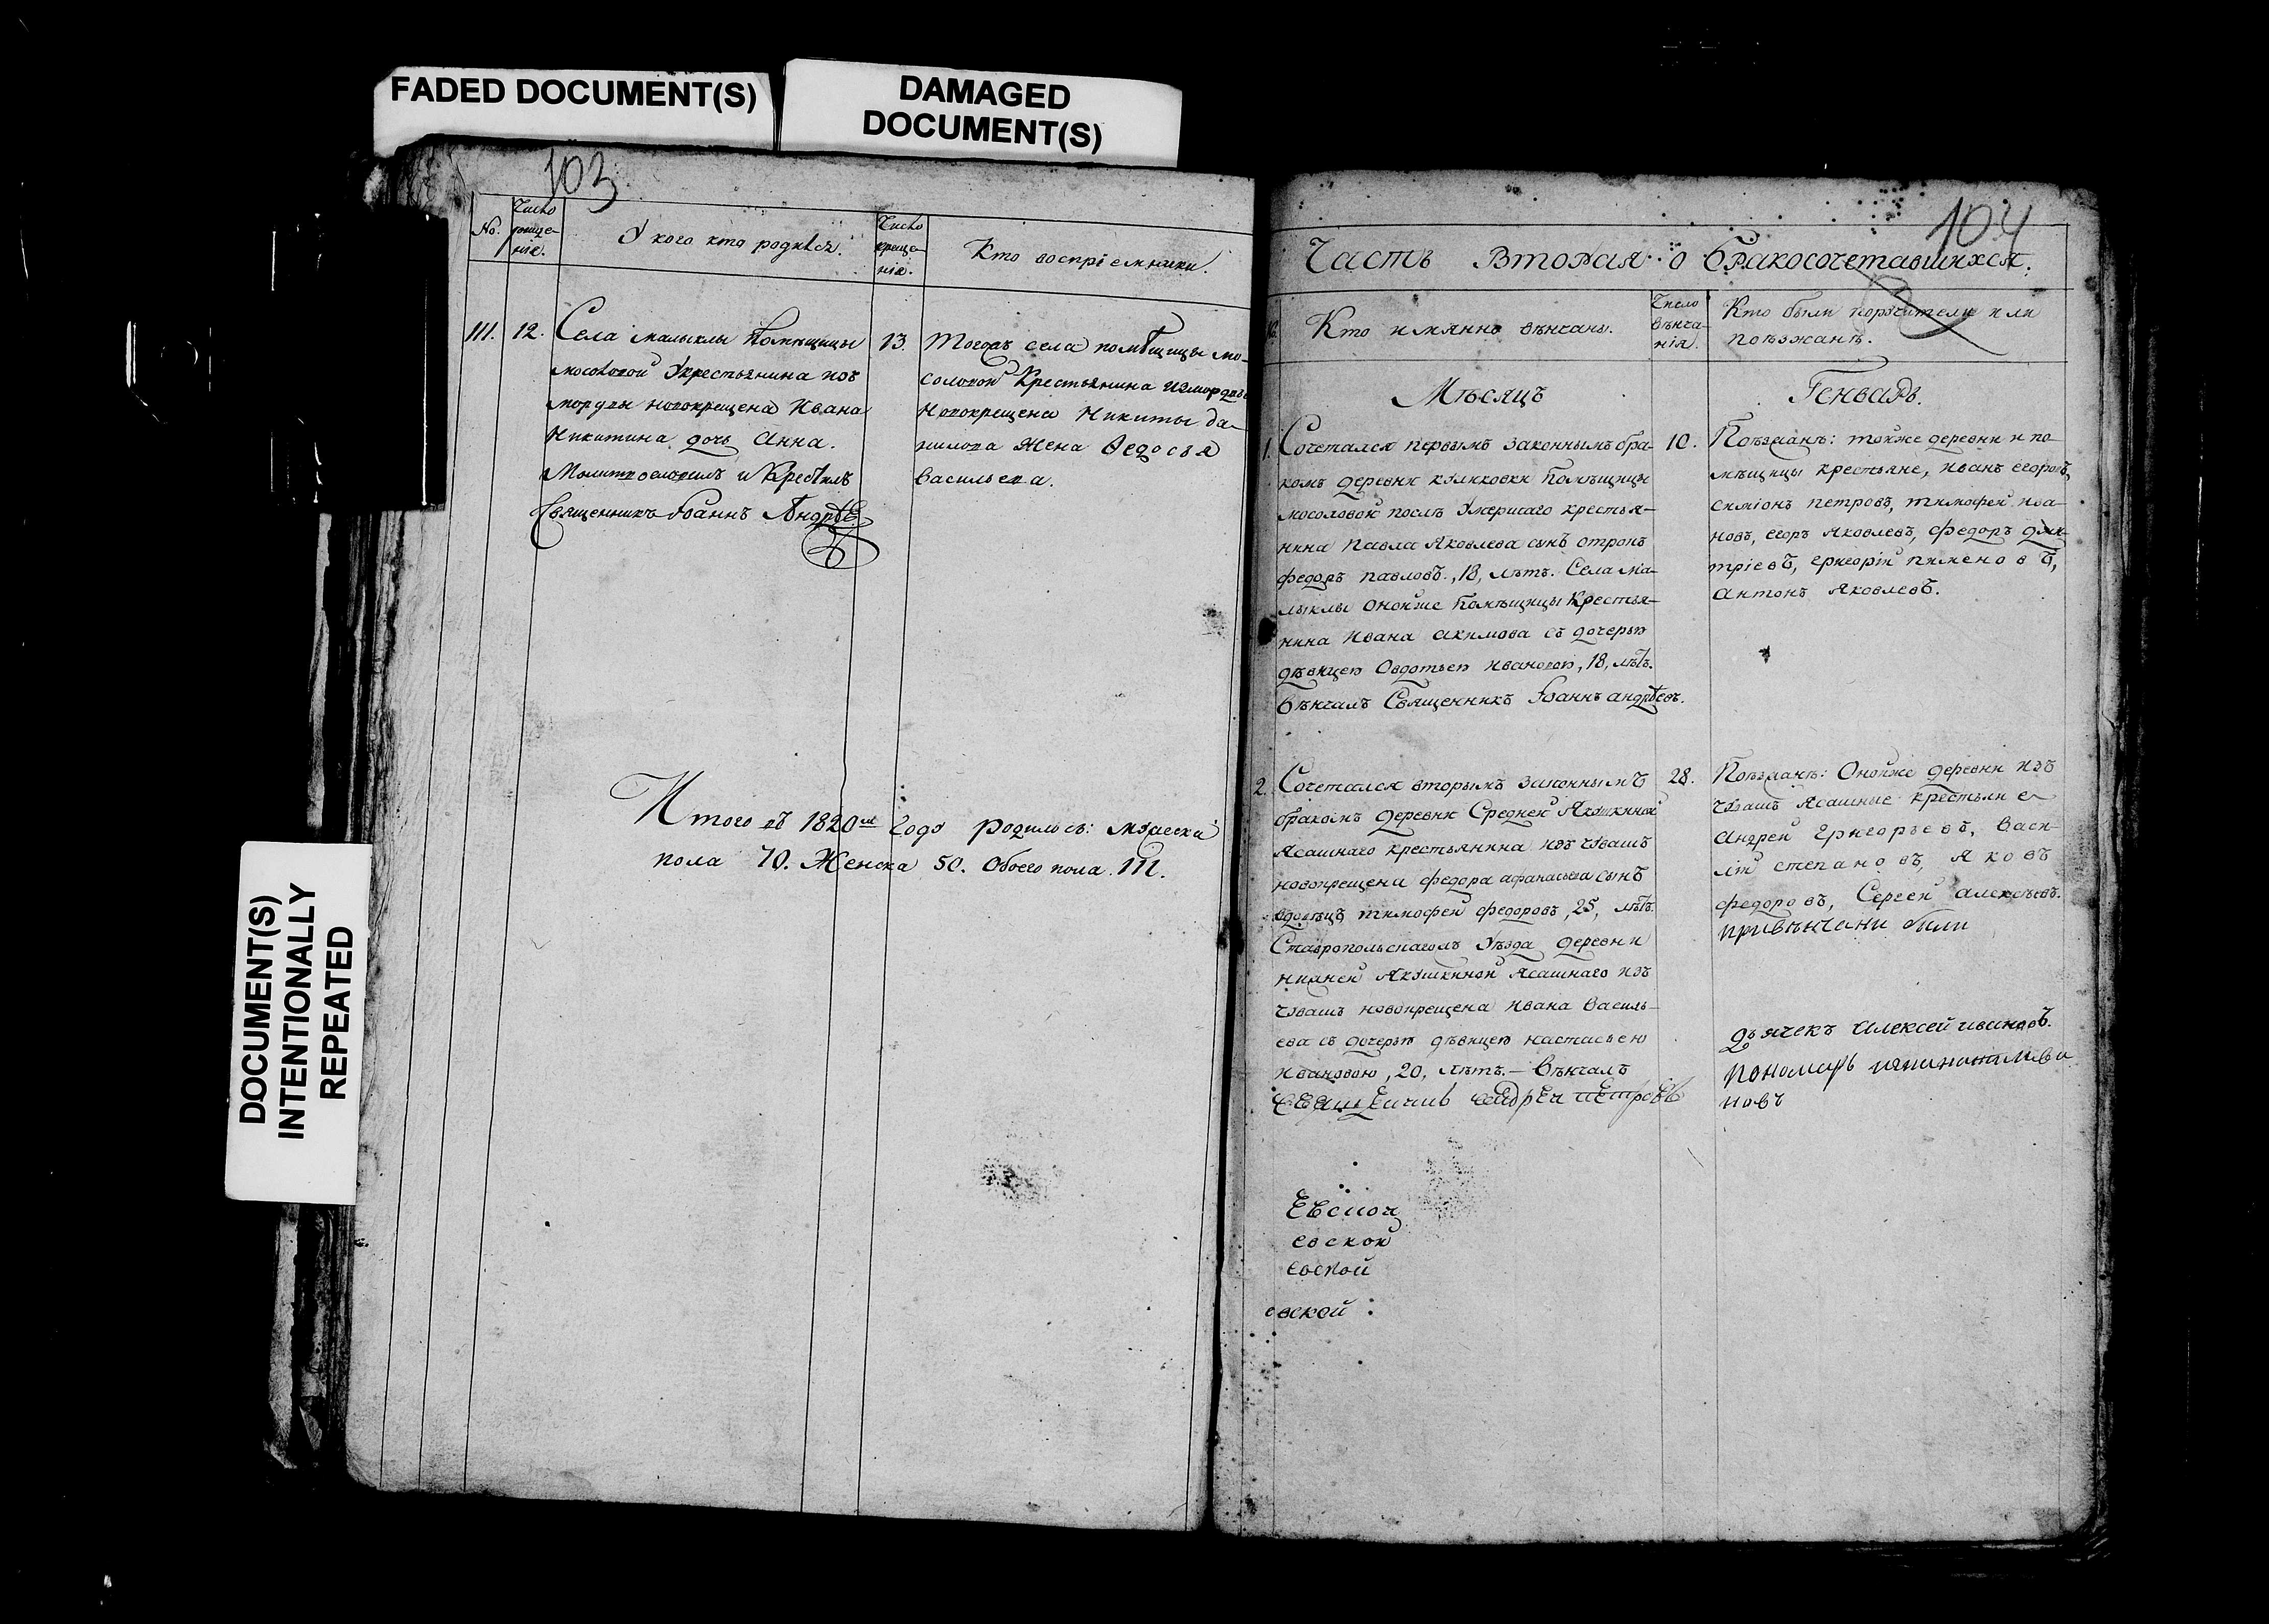 FADED DOCUMENT(S)
DAMAGED
DOCUMENT(S)
DOCUMENT(S)
INTENTIONALLY
REPEATED
103
No.
Число
рожде-
нія.
У кого кто родился.
Число
креще-
нія.
Кто воспріемники.
111.
12.
Села малыклы Помѣщицы
мосоловой Укрестьянина изъ
мордвы новокрещена Ивана
Никитина дочь Анна.
Молитвословилъ и Крестилъ
Священникъ Іоаннъ Андрѣевъ
13.
Тогожъ села помѣщицы мо-
соловой Крестьянина измордвы
Новокрещена Никиты да-
нилова Жена Ѳедосья
васильева.
Итого въ 1820мъ Году родилось: мужеска
пола 70. Женска 50. Обоего пола 111.
104
Часть Вторая о бракосочетавшихся.
Кто имянно вѣнчаны.
Число
вѣнча-
нія.
Кто были поручители или
поѣзжанѣ.
Мѣсяцъ
Генварь.
1.
Сочетался первымъ законнымъ бра-
комъ деревни куликовки Помѣщицы
мосоловой послѣ Умершаго крестья-
нина Павла Яковлева сынъ отрокъ
федоръ павловъ, 18, лѣтъ. Села ма-
лыклы онойже Помѣщицы Крестья-
нина Ивана акимова съ дочерью
дѣвицею Овдотьею ивановою, 18, лѣтъ.
Вѣнчалъ Священникъ Іоаннъ андрѣевъ.
10.
Поѣзжанѣ: тойже деревни и по-
мѣщицы крестьяне, иванъ егоровъ,
симіонъ петровъ, тимофей ива-
новъ, егоръ яковлевъ, федоръ дми-
тріевъ, григорій пименовъ,
антонъ яковлевъ.
2.
Сочетался вторымъ законнымъ
бракомъ деревни Средней Якушкиной
Ясашнаго крестьянина изъ чувашъ
новокрещена федора афанасьева сынъ
вдовецъ тимофей федоровъ, 25, лѣтъ.
Ставропольскагожъ Уѣзда деревни
нижней Якушкиной Ясашнаго изъ
чувашъ новокрещена ивана Василь-
ева съ дочерью дѣвицею настасьею
ивановою, 20, лѣтъ.— Вѣнчалъ
священникъ андрей петровъ
28.
Поѣзжанѣ: Онойже деревни изъ
чувашъ Ясашные крестьяне
андрей григорьевъ, васи-
лій степановъ, яковъ
федоровъ, Сергей алексѣевъ.
привѣнчани были
дьячекъ алексей ивановъ.
пономарь
новъ
евской
евской
евской